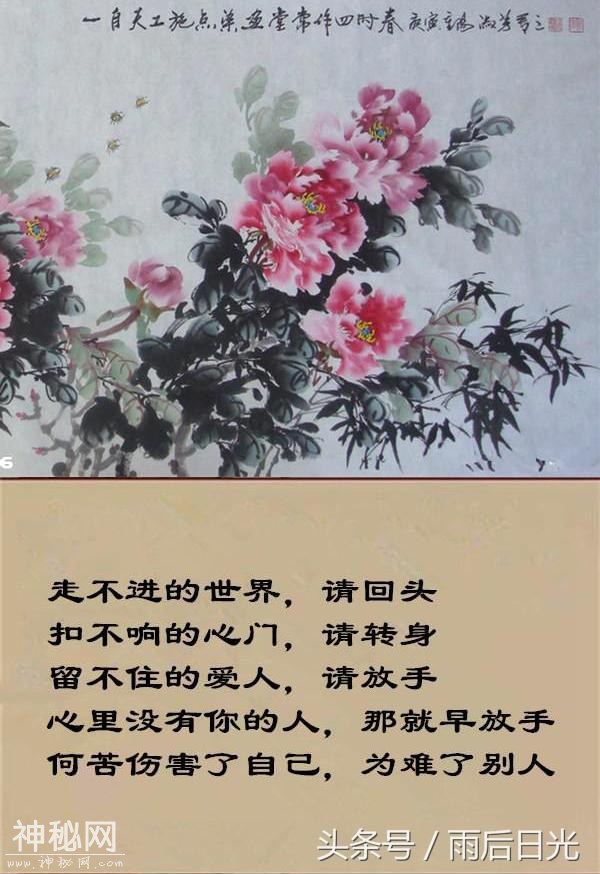 一自天工施点染画堂常作四时春庚寅淑芳
6
走不进的世界，请回头
扣不响的心门，请转身
留不住的爱人，请放手
心里没有你的人，那就早放手
何苦伤害了自己，为难了别人
神秘网
www.神秘网.COM
头条号 / 雨后日光